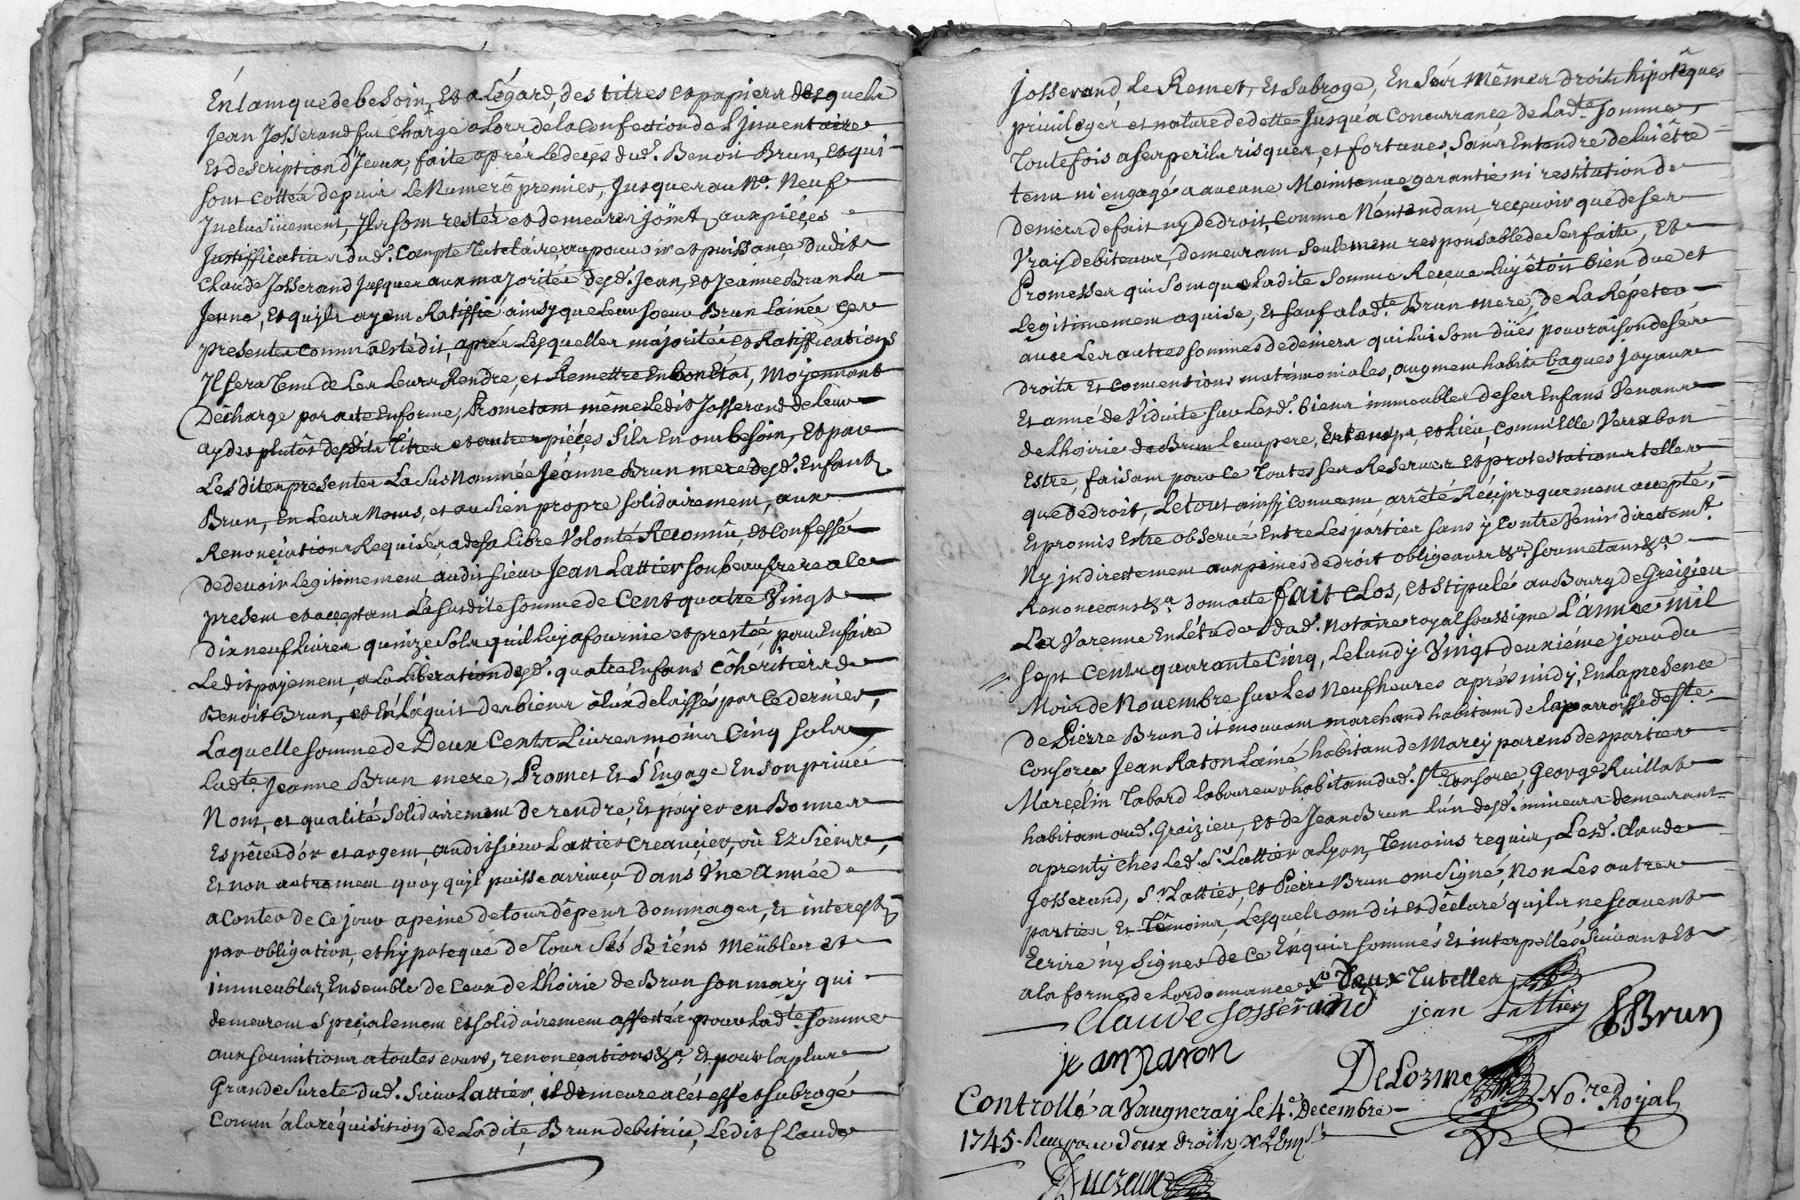 En tamque de besoin, Et a Légard, des titres et papiers desquels
Jean Josserand fut chargé alors de la Confection de L'Inventaire
Et description d'Iceux, faite aprés Le decés dud. Benoit Brun, et qui
sont cottés depuis Le Numero premier, Jusques au No. Neuf
Inclusivement, Ils sont restés et demeurés joint aux piéçes
Justifficatives dud. Compte Tutelaire, au pouvoir et puissance dudit
Claude Josserand Jusques aux majorités desd. Jean, et Jeanne Brun La
Jeune, Et qu'ils ayent Ratiffié ainsy que Leur soeur Brun L'ainée Ces
presentes comm'a esté dit, aprés Lesquelles majorités et Ratiffications
Il sera Tenu de Les Leurs Rendre, et Remettre En bon Etat, Moyennant
Décharge par acte En forme, Prometant même Ledit Josserand de Leur
ayder plutôt desdits Titres et autres piéçes s'ils En ont besoin, Et par
Les dites presentes La Susnommée Jéanne Brun mere desd. Enfants
Brun, En Leurs Noms, et au sien propre solidairement, aux
Renonçiations Requises, a de sa Libre Volonté Reconnû, et Confessé
de devoir Legitimement audit sieur Jean Lattier son beaufrere a ce
present et acceptant La susdite somme de Cent quatre Vingt
Dix neuf Livres quinze Sols qu'il Luy a fournie et prestée pour En faire
Ledit payement, a La Liberation desd. quatre Enfans Côhéritiers de
Benoit Brun, et En L'aquit des biens a Eux delaissés par Ce dernier,
Laquelle somme de Deux Cents Livres moins Cinq sols,
Lade. Jeanne Brun mere, Promet Et S'Engage En son privé
Nom, et qualité Solidairement de rendre, Et payer en Bonnes
Espéces d'or et argent, audit sieur Lattier Creançier, ou Ez siens,
Et non autrement quoy qu'il puisse arriver, Dans Une Année
a Conter de Ce jour a peine de tour dépens dommages, Et interests
par obligation, et hypoteque de Tour Sés Biéns Meübles et
immeubles, Ensemble de Ceux de L'hoirie de Brun son mary qui
demeurent Speçialement et solidairement affectés pour Lade. somme
aux soumitions a toutes cours, renonçiations &a Et pour la plus
Grande Sureté dud. Sieur Lattier, il demeure a Cet effet subrogé
Comm'a La réquisition de La dite, Brun debitrice, Ledit Claude
Josserand Le Remet, Et Subroge, En Sés Mêmes droits hipotêques
privileges et nature de dette Jusqu'a Concurrançe de Lade. somme,
Toutefois a ses perils risques, et fortunes, Sans Entendre de Lui être
tenu ni engagé a aucune Maintenue garantie ni restitution de
deniers de fait ny de droit, comme N'entendant reçevoir que de ses
Vray debiteurs, demeurant seulement responsable de ses faits, Et
Promesses qui sont que Ladite Somme Reçeue Luy étoit bien due et
Legitimement aquise, Et sauf a lade. Brun mere, de La Répeter
avec Les autres sommes de deniers qui Lui sont düës pour raison de ses
droits Et Conventions matrimoniales, augment habits bagues joyaux
Et année de Viduité sur Lesd. biens immeubles de ses Enfans Venant
de L'hoirie de Brun Leur pere, En temps, et Lieu, Comm'Elle Verra bon
Estre, faisant pour Ce Toutes ses Reserves Et protestations telles
que de droit, Le tout ainsy Convenu arrêté Réçiproquement accepté,
Et promis Estre observé Entre Les parties sans y Contre Venir directemt.
Ny indirectement aux peines de droit obligeants &a soumetants &a
Renonceants &a dont acte fait clos, et stipulé au Bourg de Greizieu
La Varenne En L'étude dud. Notaire royal soussigné L'année mil
sept cents quarante Cinq, Le Lundy Vingt deuxiéme jour du
Mois de Novembre sur Les Neuf heures aprés midy, En La presence
de Pierre Brun dit mouvant marchand habitant de La parroisse de Ste.
Consorce Jean Raton L'ainé habitant de Marcy parens des parties
Marçelin Tabard laboureur habitant dud. Ste. Consorce, George Ruillat
habitant aud. Greizieu, Et de Jean Brun L'un desd. mineurs demeurant
aprenty Chés Led. Sr. Lattier a Lyon, Temoins requis, Lesd. Claude
Josserand, Sr. Lattier, Et Pierre Brun ont Signé, Non Les autres
parties Et Témoins, Lesquels ont dit et déclaré qu'ils ne sçavent
Ecrire ny signer de Ce Enquis sommés Et interpellés Suivant Et
a la forme de L'ordonnance
Claude Josserand
jean Lattier
P Brun
jeanraton
DeLorme No.re Royal
Controllé a Vaugneray Le 4e. Decembre
1745. Reçu pour deux droits
Ducreux